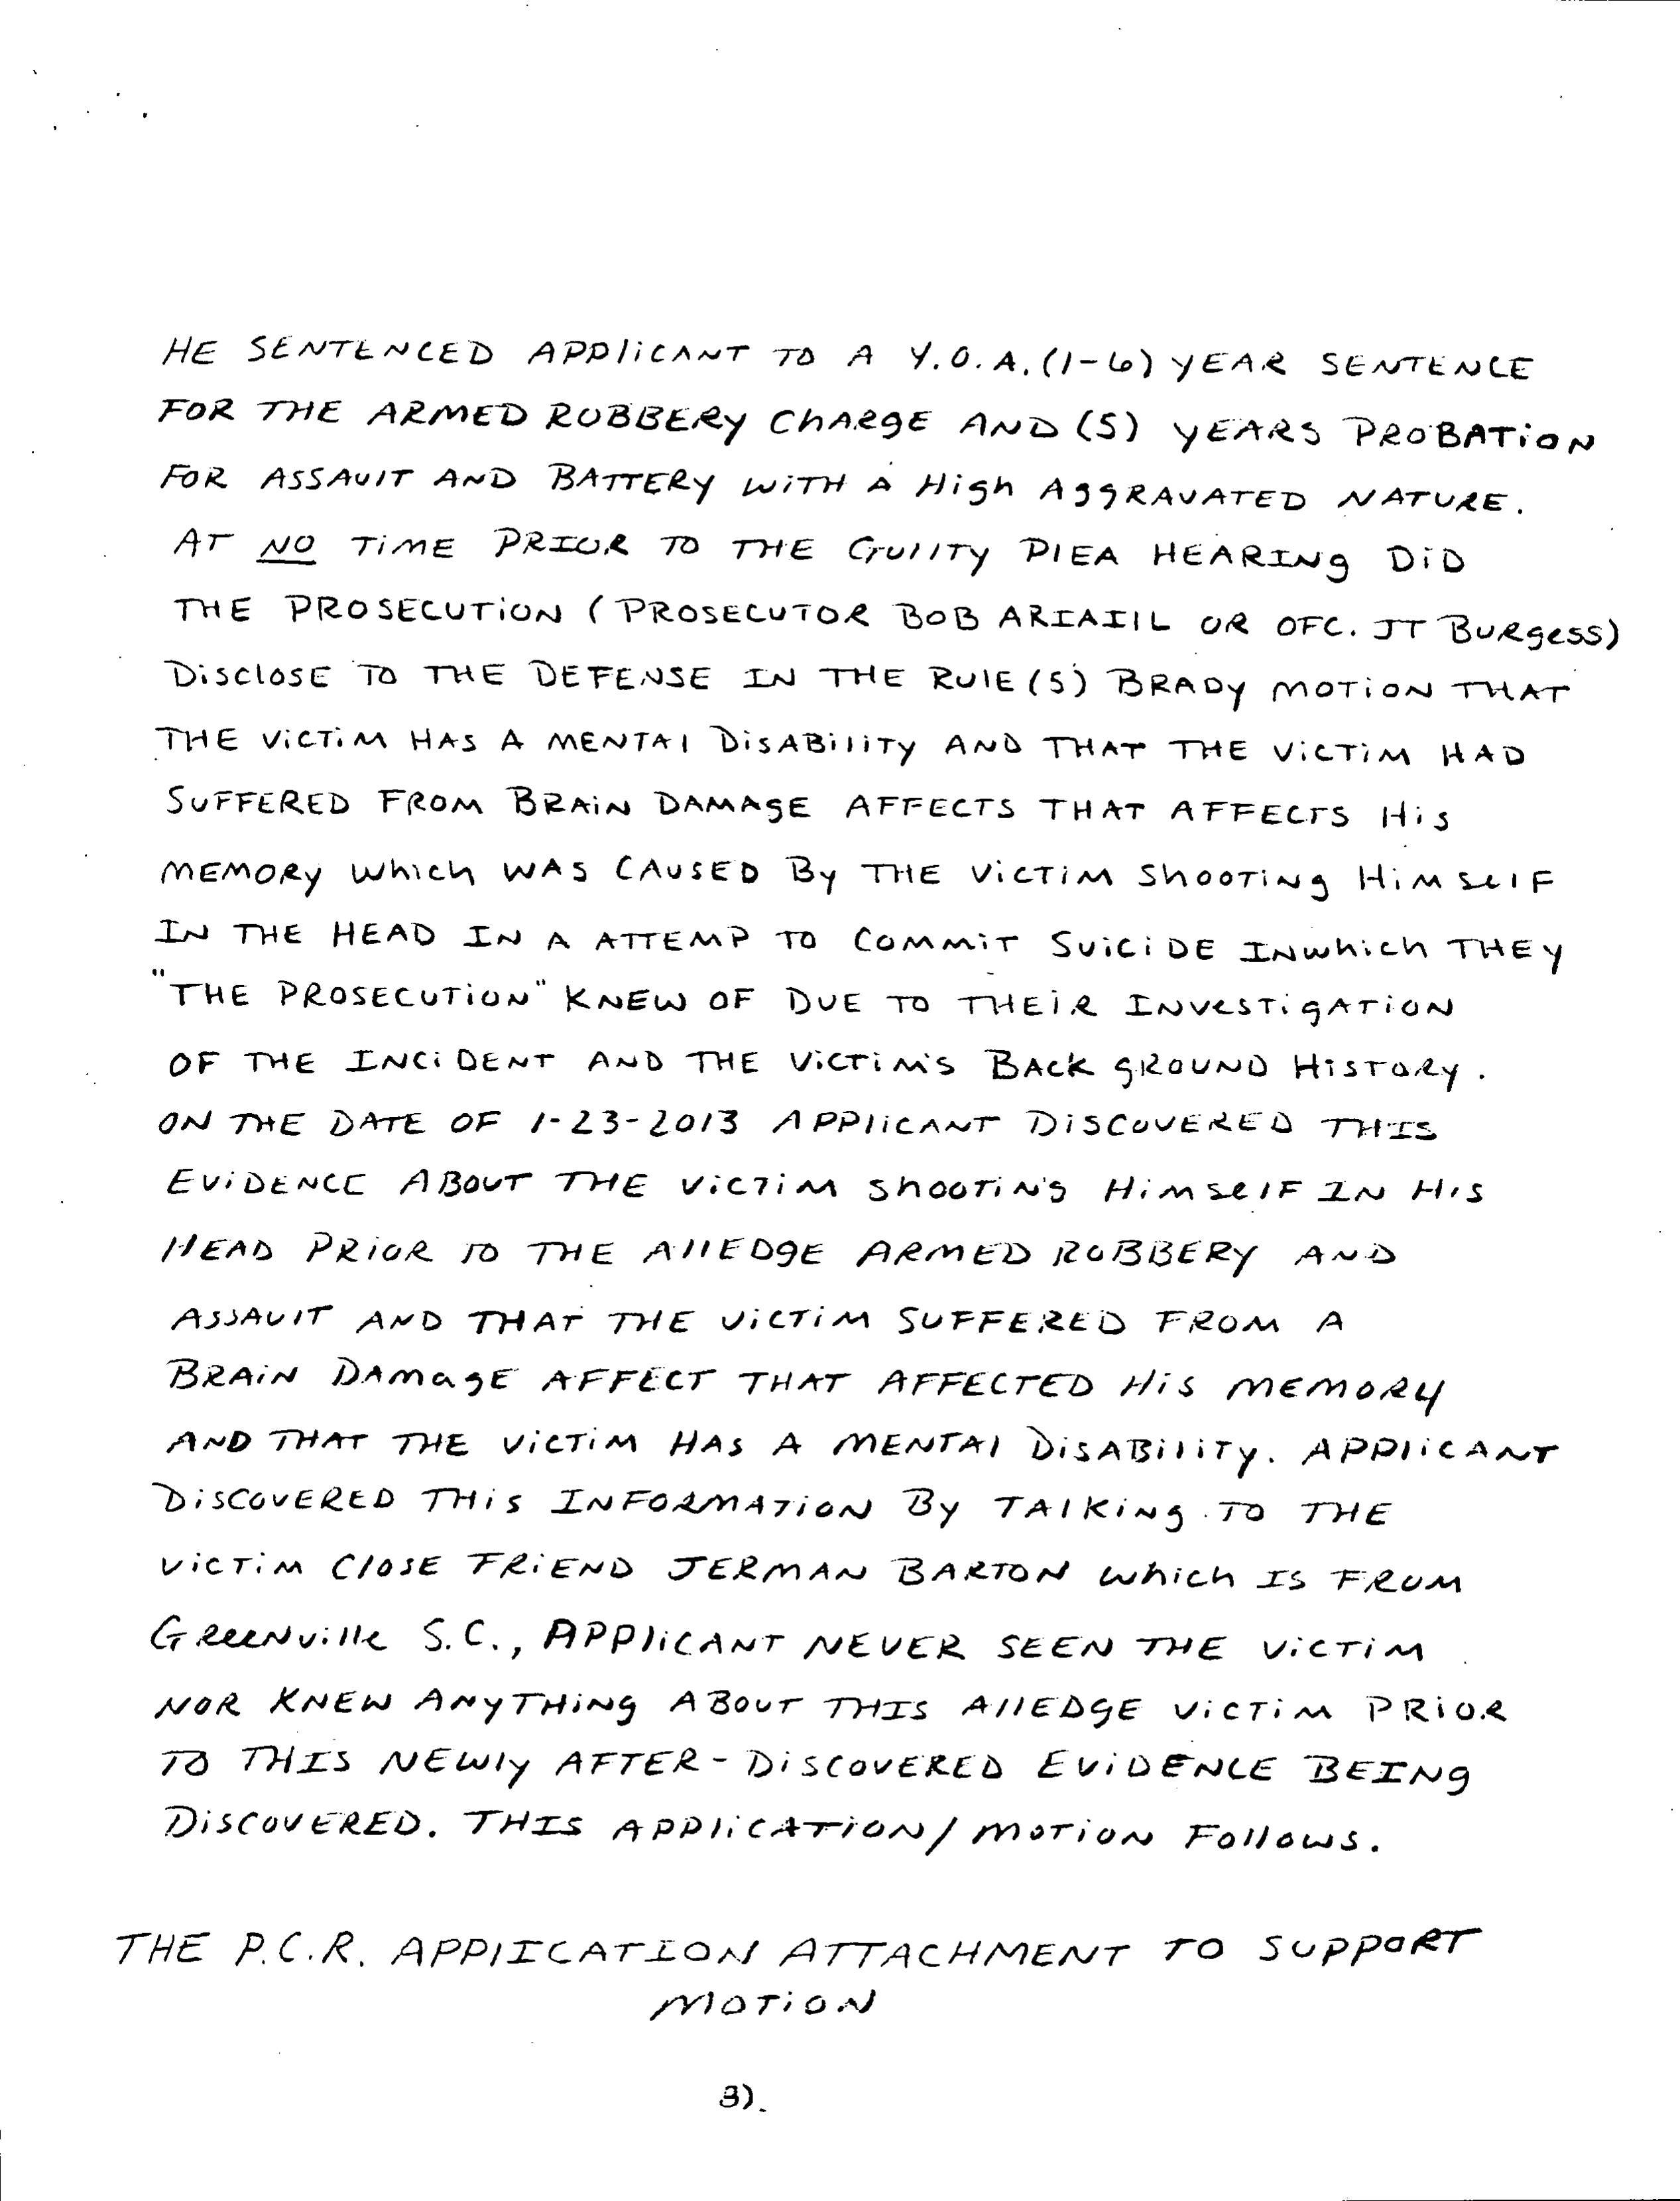 HE SENTENCED APPliCANT TO A Y.O.A. (1-6) YEAR SENTENCE
FOR THE ARMED ROBBERY ChARgE AND (5) YEARS PROBATiON
FOR ASSAulT AND BATTERY WiTH A High AggRAVATED NATURE.
AT NO TiME PRIOR TO THE GuilTY PlEA HEARINg DiD
THE PROSECUTiON (PROSECUTOR BOB ARIAIIL OR OFC. JT BURgess)
DisclOSE TO THE DEFENSE IN THE RUlE(5) BRADY MOTiON THAT
THE ViCTiM HAS A MENTAl DiSABiliTY AND THAT THE ViCTiM HAD
SUFFERED FROM BRAiN DAMAgE AFFECTS THAT AFFECTS His
MEMORY which WAS CAUSED By THE ViCTiM ShOOTiNg HiMSelF
IN THE HEAD IN A ATTEMP TO COMMiT SuiCiDE INwhich THEY
"THE PROSECUTiON" KNEW OF DUE TO THEiR INVesTigATiON
OF THE INCiDENT AND THE ViCTiM'S BACk gROUND HiSTORY.
ON THE DATE OF 1-23-2013 APPliCANT DiSCOVERED THIS
EViDENCE ABOUT THE ViCTiM ShOOTiNg HiMSelF IN His
HEAD PRiOR TO THE AllEDgE ARMED ROBBERY AND
ASSAulT AND THAT THE ViCTiM SUFFERED FROM A
BRAiN DAMagE AFFECT THAT AFFECTED His MEMORY
AND THAT THE ViCTiM HAS A MENTAl DiSABiliTY. APPliCANT
DiSCOVERED THiS INFORMATiON By TAlKiNg TO THE
ViCTiM ClOSE FRiEND JERMAN BARTON which IS FROM
GReeNville S.C., APPliCANT NEVER SEEN THE ViCTiM
NOR KNEW ANyTHiNg ABOUT THIS AllEDgE ViCTiM PRiOR
TO THIS NEWly AFTER-DiSCOVERED EViDENCE BEINg
DiSCOVERED. THIS APPliCATiON/MOTiON FOllOWS.
THE P.C.R. APPlICATION ATTACHMENT TO SUPPORT
MOTiON
3).